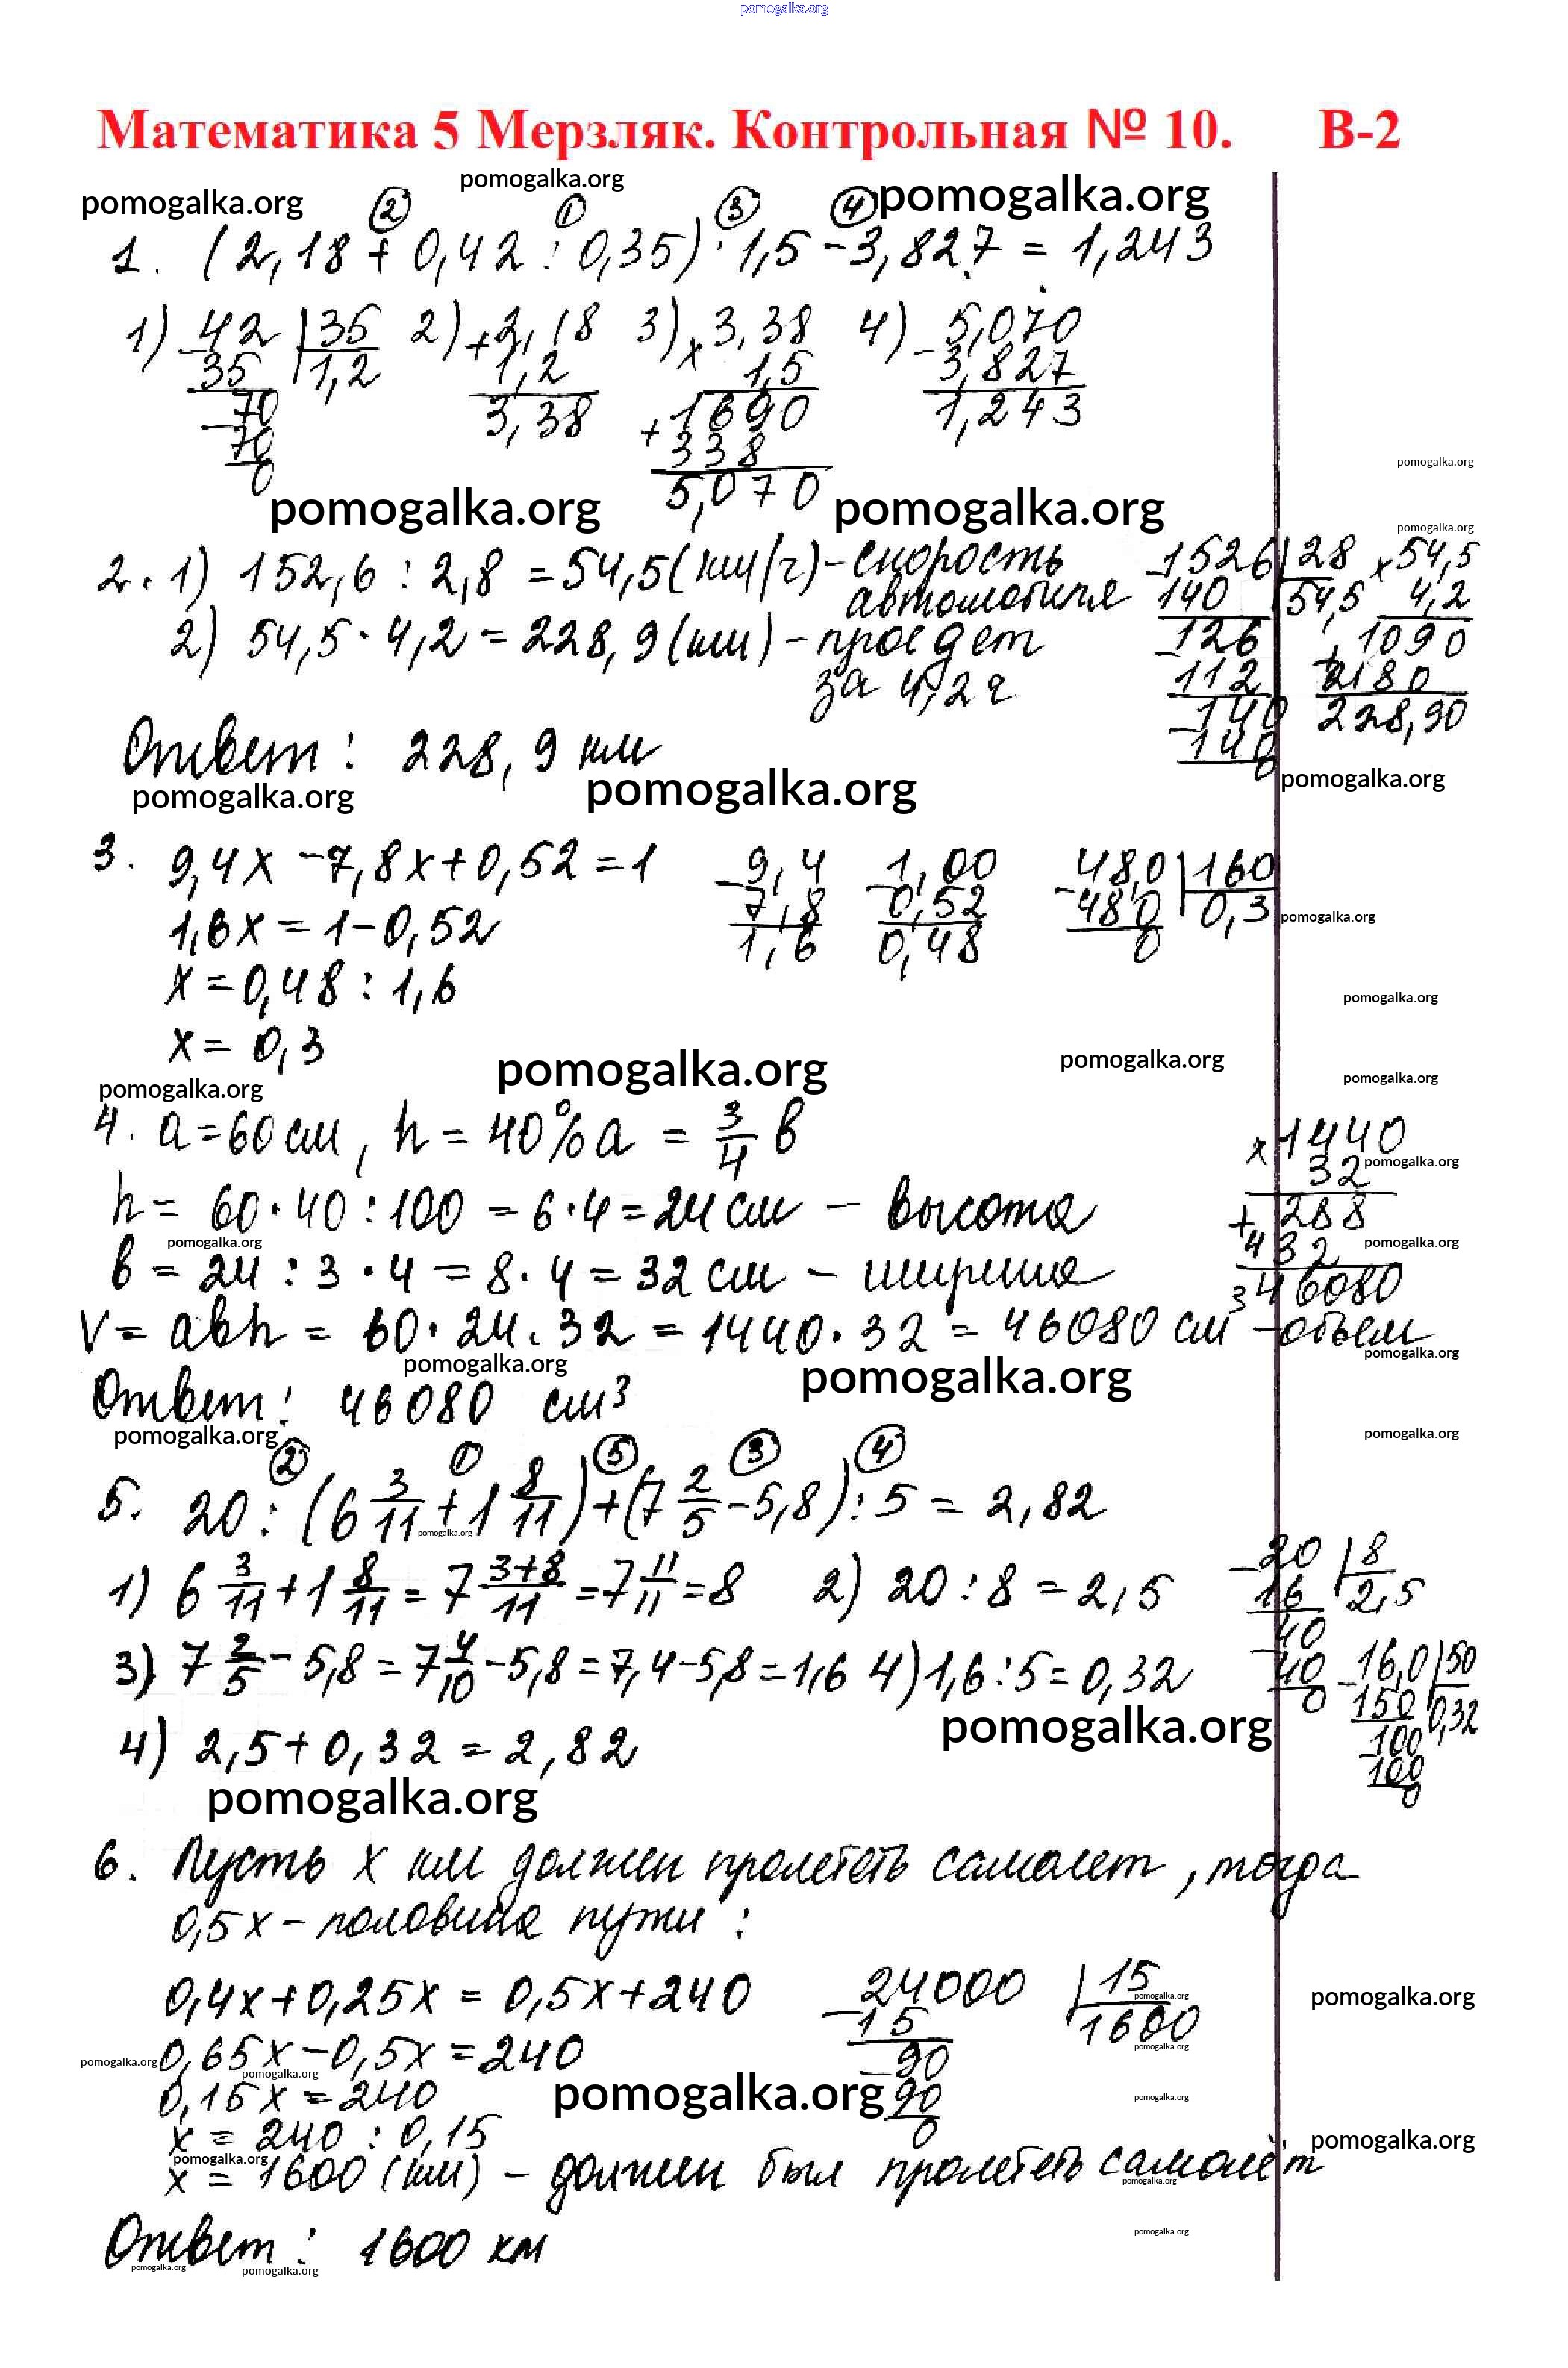 pomogalka.org
Математика 5 Мерзляк. Контрольная № 10. В-2
pomogalka.org
pomogalka.org
pomogalka.org
2 1 3 4
1. (2,18 + 0,42 : 0,35) · 1,5 - 3,827 = 1,243
1) 42 | 35 2) + 2,18 3) x 3,38 4) - 5,070
- 35 | 1,2 1,2 1,5 3,827
- 70 3,38 + 1690 1,243
70 338
0 5,070
pomogalka.org pomogalka.org
pomogalka.org
pomogalka.org
2. 1) 152,6 : 2,8 = 54,5 (км/ч) - скорость
автомобиля
2) 54,5 · 4,2 = 228,9 (км) - проедет
за 4,2 ч
- 1526 | 28 x 54,5
140 | 54,5 4,2
- 126 + 1090
112 2180
- 140 228,90
140
0
Ответ: 228,9 км
pomogalka.org pomogalka.org pomogalka.org
3. 9,4x - 7,8x + 0,52 = 1
1,6x = 1 - 0,52
x = 0,48 : 1,6
x = 0,3
- 9,4 - 1,00 - 48,0 | 160
7,8 0,52 480 | 0,3
1,6 0,48 0
pomogalka.org
pomogalka.org
pomogalka.org pomogalka.org
pomogalka.org
pomogalka.org
4. a = 60 см, h = 40% a = 3/4 в
h = 60 · 40 : 100 = 6 · 4 = 24 см - высота
pomogalka.org
в = 24 : 3 · 4 = 8 · 4 = 32 см - ширина
V = aвh = 60 · 24 · 32 = 1440 · 32 = 46080 см³ - объем
x 1440
32
+ 288
432
46080
pomogalka.org
pomogalka.org
pomogalka.org
pomogalka.org pomogalka.org
Ответ: 46080 см³
pomogalka.org pomogalka.org
2 1 5 3 4
5. 20 : (6 3/11 + 1 8/11) + (7 2/5 - 5,8) : 5 = 2,82
pomogalka.org
1) 6 3/11 + 1 8/11 = 7 3+8/11 = 7 11/11 = 8 2) 20 : 8 = 2,5
3) 7 2/5 - 5,8 = 7 4/10 - 5,8 = 7,4 - 5,8 = 1,6 4) 1,6 : 5 = 0,32
4) 2,5 + 0,32 = 2,82
- 20 | 8
16 | 2,5
- 40
40
0
- 16,0 | 50
150 | 0,32
- 100
100
0
pomogalka.org
pomogalka.org
6. Пусть x км должен пролететь самолет, тогда
0,5x - половина пути:
0,4x + 0,25x = 0,5x + 240
0,65x - 0,5x = 240
0,15x = 240
x = 240 : 0,15
x = 1600 (км) - должен был пролететь самолёт
- 24000 | 15
15 | 1600
- 90
90
0
pomogalka.org
pomogalka.org
pomogalka.org
pomogalka.org
pomogalka.org
pomogalka.org
pomogalka.org
pomogalka.org
pomogalka.org
pomogalka.org
pomogalka.org
Ответ: 1600 км
pomogalka.org
pomogalka.org